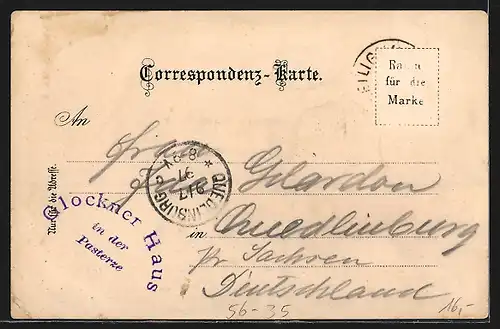 Correspondenz-Karte.
EILIG
Raum
für die
Marke
An
Frau
Gelardon
in Quedlinburg
pr Sachsen
Deutschland
Nur für die Adresse.
QUEDLINBURG
Glockner Haus
in der
Pasterze
56-35
16,-